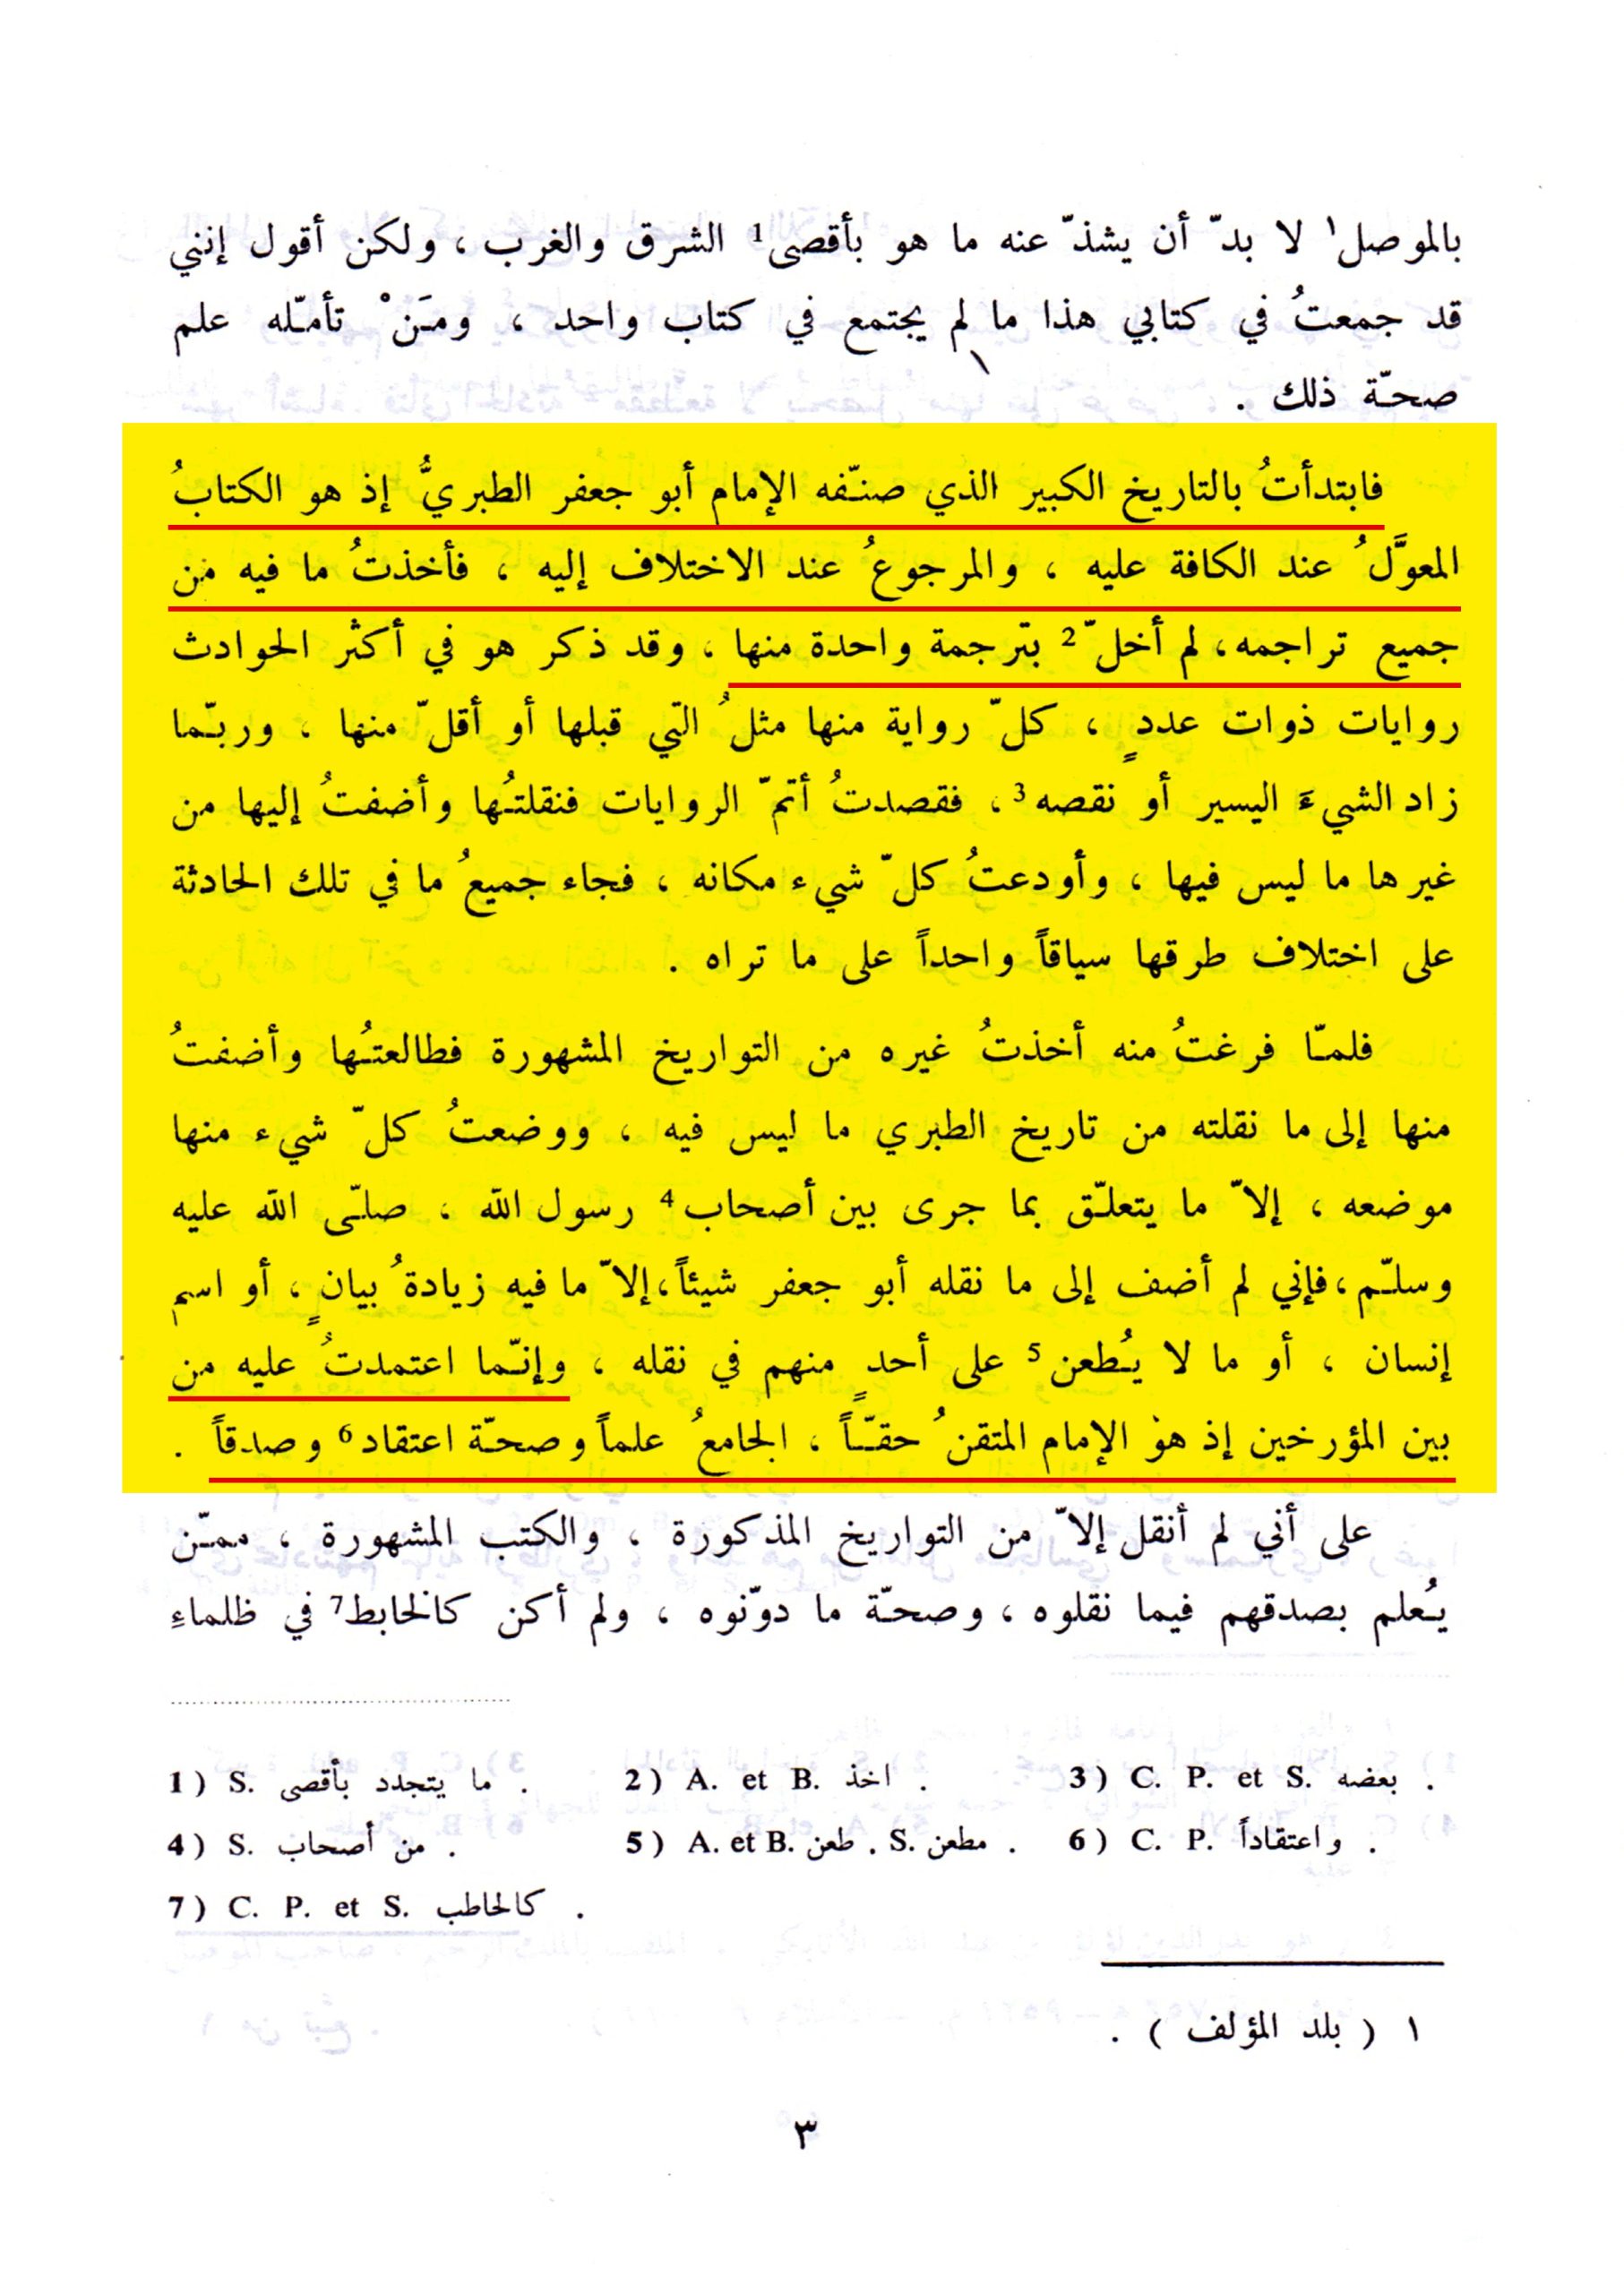 بالموصل١ لا بدّ أن يشذّ عنه ما هو بأقصى1 الشرق والغرب ، ولكن أقول إنني
قد جمعتُ في كتابي هذا ما لم يجتمع في كتاب واحد ، ومَنْ تأمّله علم
صحّة ذلك .
فابتدأتُ بالتاريخ الكبير الذي صنّفه الإمام أبو جعفر الطبريُّ إذ هو الكتابُ
المعوَّلُ عند الكافة عليه ، والمرجوعُ عند الاختلاف إليه ، فأخذتُ ما فيه من
جميع تراجمه، لم أخلّ2 بترجمة واحدة منها ، وقد ذكر هو في أكثر الحوادث
روايات ذوات عددٍ ، كلّ رواية منها مثلُ التي قبلها أو أقلّ منها ، وربّما
زاد الشيءَ اليسير أو نقصه3 ، فقصدتُ أتمّ الروايات فنقلتُها وأضفتُ إليها من
غيرها ما ليس فيها ، وأودعتُ كلّ شيء مكانه ، فجاء جميعُ ما في تلك الحادثة
على اختلاف طرقها سياقاً واحداً على ما تراه .
فلمّا فرغتُ منه أخذتُ غيره من التواريخ المشهورة فطالعتُها وأضفتُ
منها إلى ما نقلته من تاريخ الطبري ما ليس فيه ، ووضعتُ كلّ شيء منها
موضعه ، إلاّ ما يتعلّق بما جرى بين أصحاب4 رسول الله ، صلّى الله عليه
وسلّم، فإني لم أضف إلى ما نقله أبو جعفر شيئاً، إلاّ ما فيه زيادةُ بيانٍ ، أو اسم
إنسان ، أو ما لا يُطعن5 على أحدٍ منهم في نقله ، وإنّما اعتمدتُ عليه من
بين المؤرخين إذ هو الإمام المتقنُ حقّاً ، الجامعُ علماً وصحّة اعتقاد6 وصدقاً .
على أني لم أنقل إلاّ من التواريخ المذكورة ، والكتب المشهورة ، ممّن
يُعلم بصدقهم فيما نقلوه ، وصحّة ما دوّنوه ، ولم أكن كالخابط7 في ظلماءِ
1) S. ما يتجدد بأقصى . 2) A. et B. اخذ . 3) C. P. et S. بعضه .
4) S. من أصحاب . 5) A. et B. طعن . S. مطعن . 6) C. P. واعتقاداً .
7) C. P. et S. كالحاطب .
١ ( بلد المؤلف ) .
٣